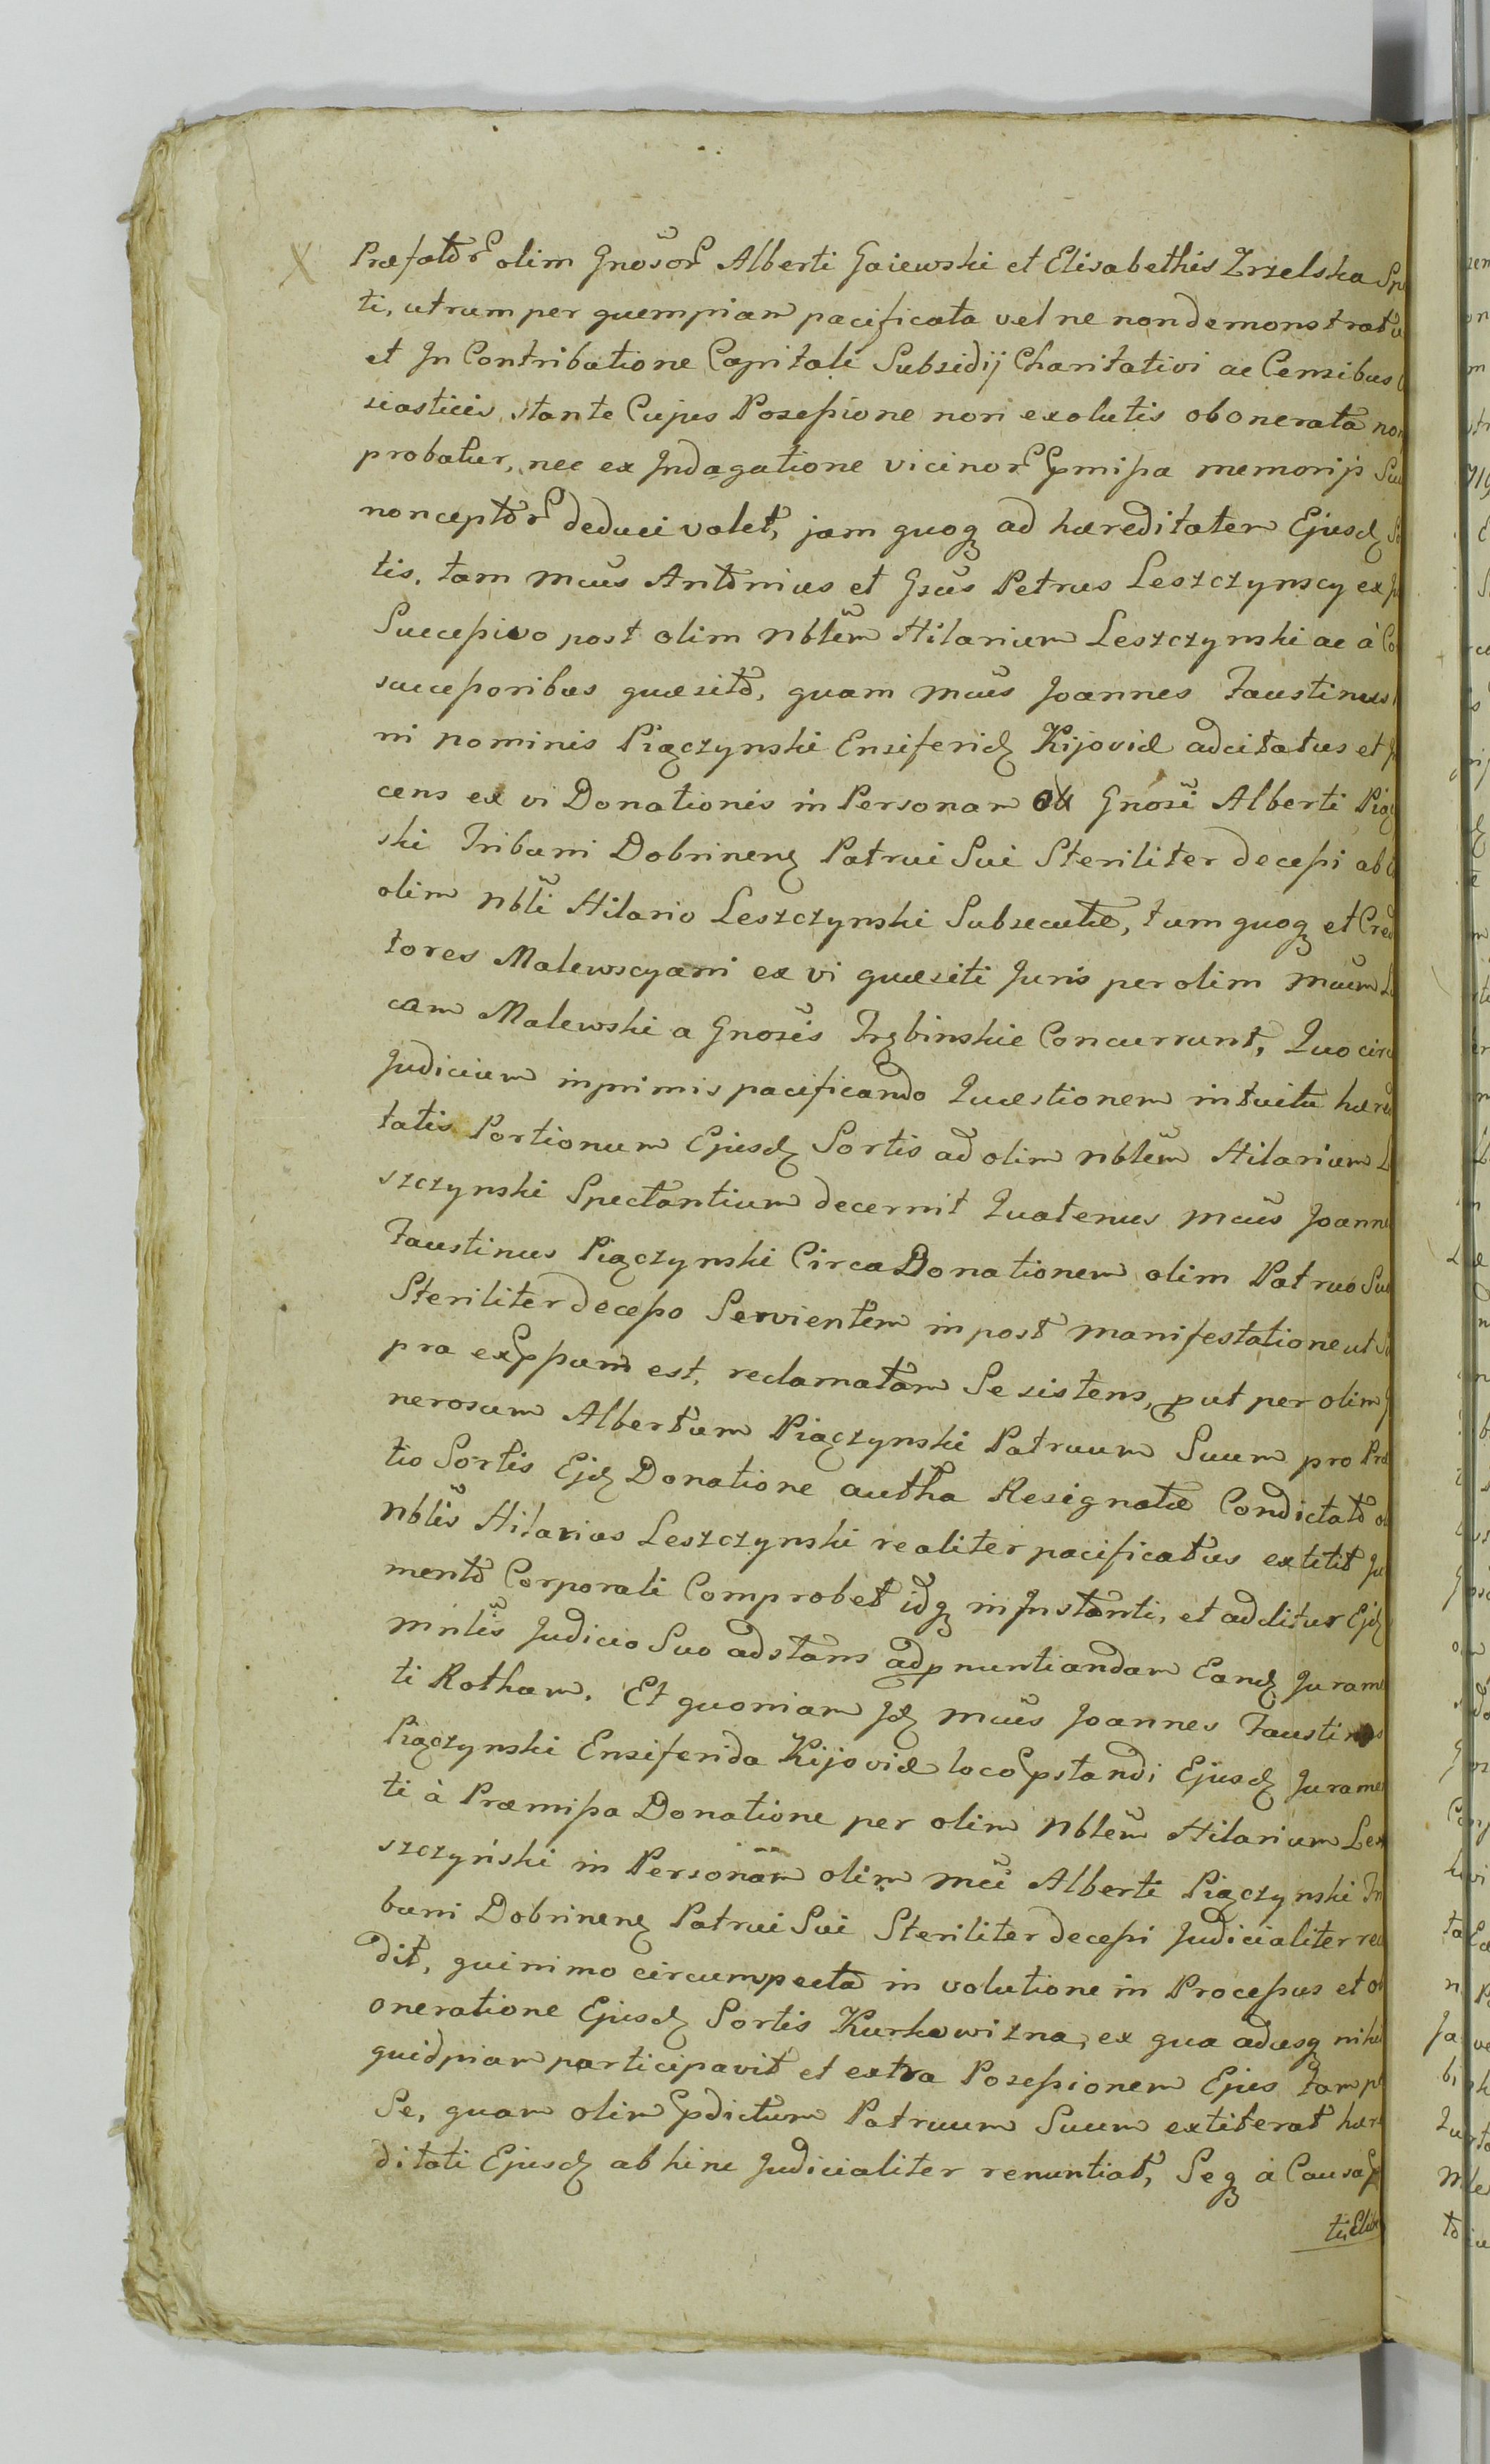 X Præfator olim Gnosor Alberti Gaiewski et Elisabethis Zrzelska Sp
ti, utrum per quempiam pacificata vel ne non demonstratu
et In Contributione Capitali Subsidij Charitativi ac Censibus
siasticis, stante Cujus Possessione non exolutis obonerata non
probatur, nec ex Indagatione vicinor præmissa memorijs Suis
nonceptor deduci valet, jam quoq ad hæreditatem Ejusd
tis, tam Mcus Antonius et Gsus Petrus Leszczynscy ex
Successivo post olim Nblem Hilarium Leszczynski ac à
successoribus quæsito, quam Mcus Joannes Faustinus
ni nominis Piączynski Ensiferid Kijoviæ adcitatus et
cens ex vi Donationis in Personam Gnosi Alberti Piąc
ski Tribuni Dobrinen Patrui Sui Steriliter decessi ab
olim Nbli Hilario Leszczynski Subsecutæ, tum quoq et Cred
tores Malewscyani ex vi quæsiti Juris per olim Mcum Lu
cam Malewski a Gnosis Trębinskie Concurrunt, Quocirca
Judicium inprimis pacificando Quæstionem intuitu hæredi
tatis Portionum Ejusd Sortis ad olim Nblem Hilarium Le
szczynski Spectantium decernit Quatenus Mcus Joannes
Faustinus Piączynski Circa Donationem olim Patruo Suo
Steriliter decesso Servientem in post manifestatione ut Su
pra expressum est, reclamatam Se sistens, prout per olim
nerosum Albertum Piączynski Patruum Suum pro Præ
tio Sortis Ejd Donatione autha Resignatæ Condictato
Nblis Hilarius Leszczynski realiter pacificatus extitit Ju
mento Corporali Comprobet idq in Instanti, et additur Ejd
Mrilis Judicio Suo adstans ad pnuntiandam Eand Jurame
ti Rotham. Et quoniam Id Mcus Joannes Faustinus
Piączynski Ensiferida Kijoviæ loco præstandi Ejusd Jurame
ti à Præmissa Donatione per olim Nblem Hilarium Le
szczyński in Personam olim Mci Alberti Piączynski Tri
buni Dobrinen Patrui Sui Steriliter decessi Judicialiter rece
dit, quinimo circumspecta in volutione in Processus et ob
oneratione Ejusd Sortis Kurkowizna, ex qua adusq nihil
quidpiam participavit et extra Possessionem Ejus tam p
Se, quam olim prædictum Patruum Suum extiterat hære
ditati Ejusd abhinc Judicialiter renuntiat, Seq à Causa